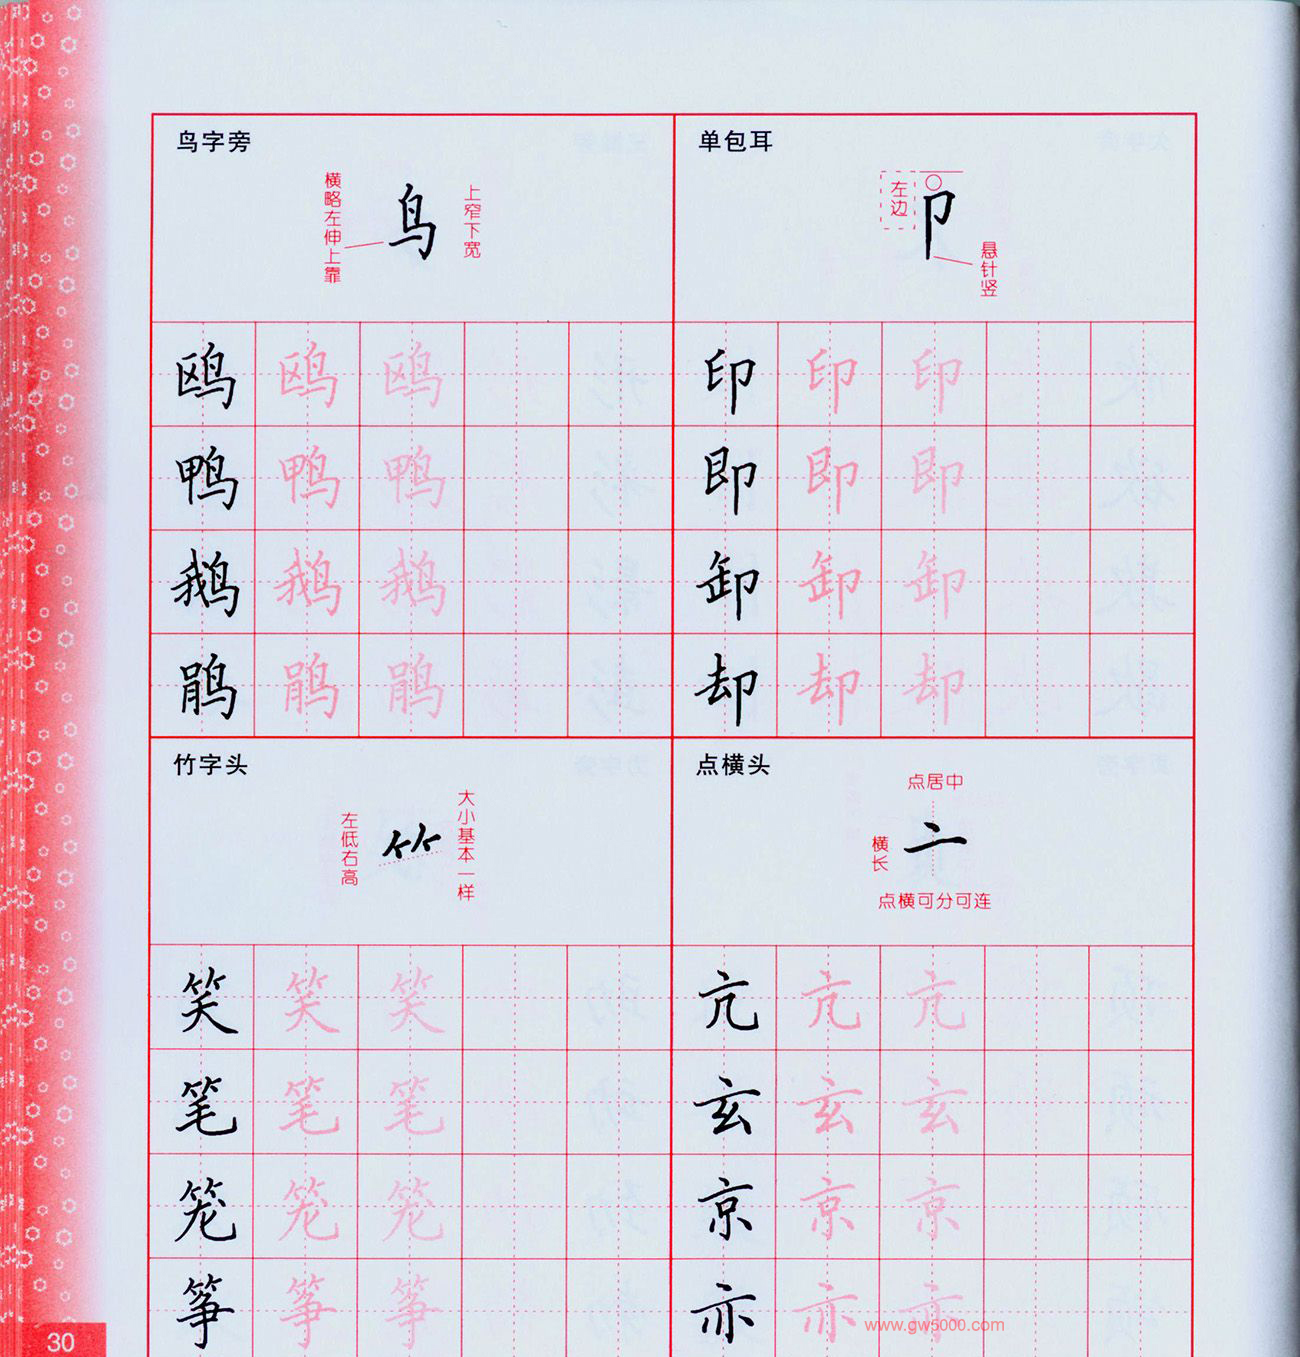 鸟字旁
横略左伸上靠
鸟
上窄下宽
鸥 鸥 鸥
鸭 鸭 鸭
鹅 鹅 鹅
鹃 鹃 鹃
单包耳
左边
卩
悬针竖
印 印 印
即 即 即
卸 卸 卸
却 却 却
竹字头
左低右高
⺮
大小基本一样
笑 笑 笑
笔 笔 笔
笼 笼 笼
筝 筝 筝
点横头
点居中
横长
亠
点横可分可连
亢 亢 亢
玄 玄 玄
京 京 京
亦 亦 亦
www.gw5000.com
30